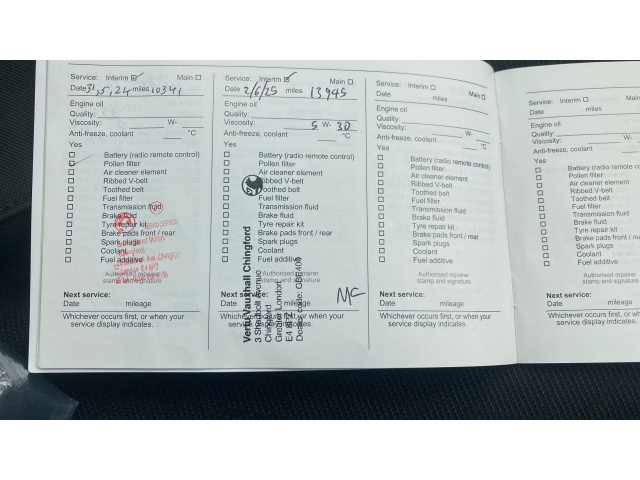 Service: Interim ☑ Main ☐
Date 31,5,24 miles 10341
Engine oil
Quality:
Viscosity: W-
Anti-freeze, coolant °C
Yes
☐ Battery (radio remote control)
☐ Pollen filter
☐ Air cleaner element
☐ Ribbed V-belt
☐ Toothed belt
☐ Fuel filter
☐ Transmission fluid
☐ Brake fluid
☐ Tyre repair kit
☐ Brake pads front / rear
☐ Spark plugs
☐ Coolant
☐ Fuel additive
Authorised repairer
stamp and signature
Next service:
Date mileage
Whichever occurs first, or when your
service display indicates.
Service: Interim ☑ Main ☐
Date 2/6/25 miles 13945
Engine oil
Quality:
Viscosity: 5 W- 30
Anti-freeze, coolant °C
Yes
☐ Battery (radio remote control)
☐ Pollen filter
☐ Air cleaner element
☐ Ribbed V-belt
☐ Toothed belt
☐ Fuel filter
☐ Transmission fluid
☐ Brake fluid
☐ Tyre repair kit
☐ Brake pads front / rear
☐ Spark plugs
☐ Coolant
☐ Fuel additive
Authorised repairer
stamp and signature
Vauxhall Chingford
Avenue
Chingford
Greater London
E4
code:
MC
Next service:
Date mileage
Whichever occurs first, or when your
service display indicates.
Service: Interim ☐ Main ☐
Date miles
Engine oil
Quality:
Viscosity: W-
Anti-freeze, coolant °C
Yes
☐ Battery (radio remote control)
☐ Pollen filter
☐ Air cleaner element
☐ Ribbed V-belt
☐ Toothed belt
☐ Fuel filter
☐ Transmission fluid
☐ Brake fluid
☐ Tyre repair kit
☐ Brake pads front / rear
☐ Spark plugs
☐ Coolant
☐ Fuel additive
Authorised repairer
stamp and signature
Next service:
Date mileage
Whichever occurs first, or when your
service display indicates.
Service: Interim ☐ M
Date miles
Engine oil
Quality:
Viscosity: W-
Anti-freeze, coolant
Yes
☐ Battery (radio remote
☐ Pollen filter
☐ Air cleaner element
☐ Ribbed V-belt
☐ Toothed belt
☐ Fuel filter
☐ Transmission fluid
☐ Brake fluid
☐ Tyre repair kit
☐ Brake pads front / rea
☐ Spark plugs
☐ Coolant
☐ Fuel additive
Authorised repairer
stamp and signature
Next service:
Date mileage
Whichever occurs first, or when
service display indicates.